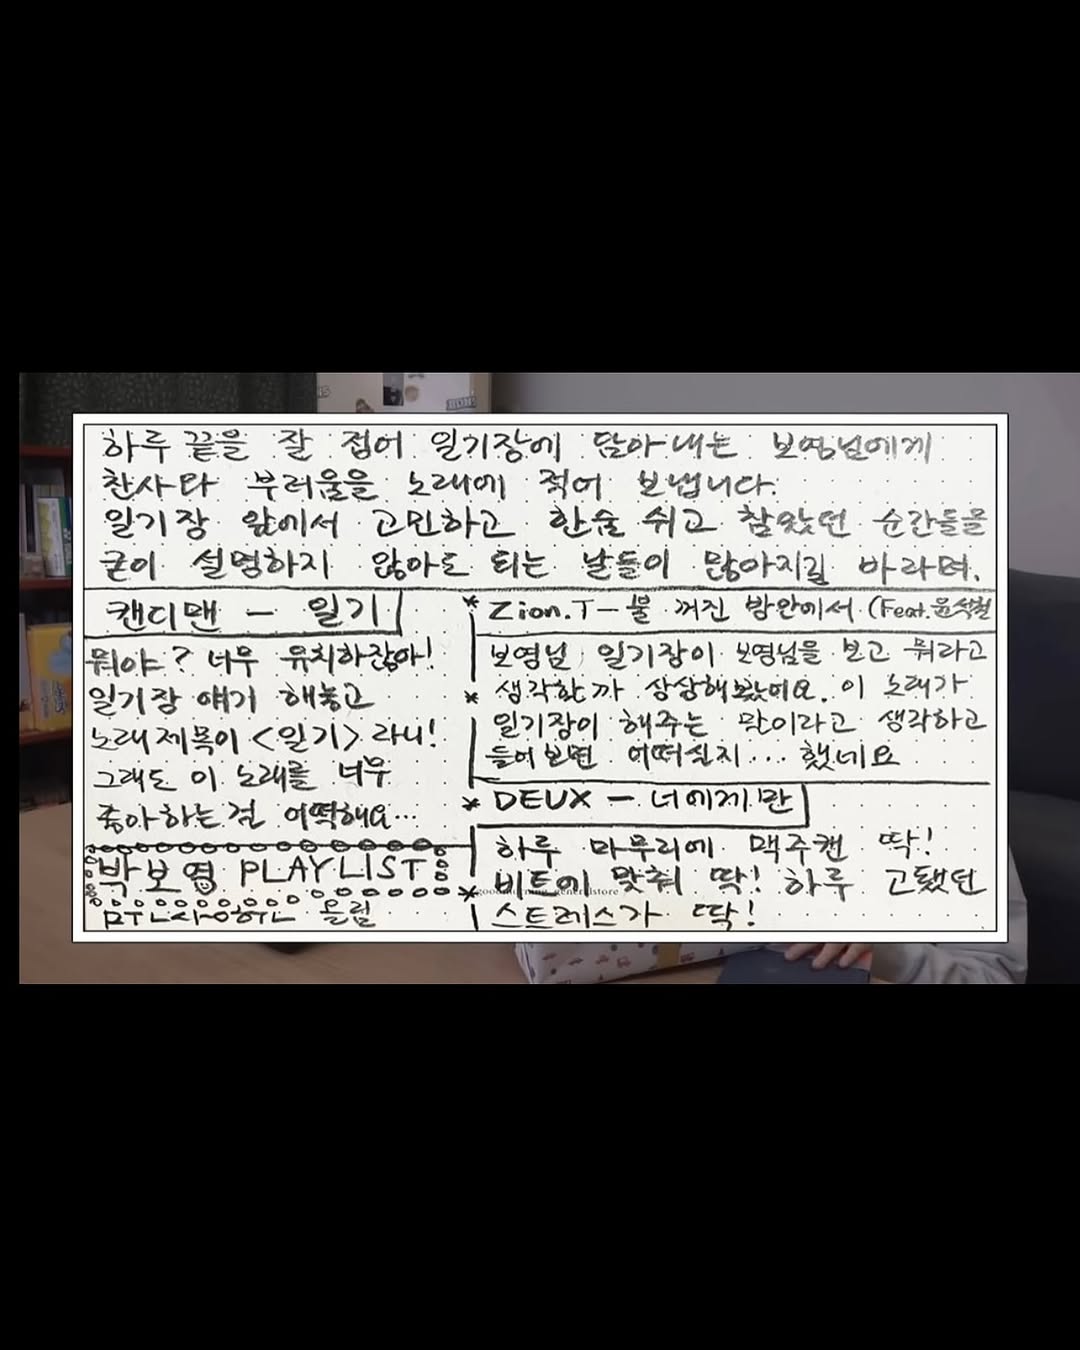 하루 끝을 잘 접어 일기장에 담아내는 보영님에게
찬사와 부러움을 노래에 적어 보냅니다.
일기장 앞에서 고민하고 한숨 쉬고 참았던 순간들을
굳이 설명하지 않아도 되는 날들이 많아지길 바라며.
캔디맨 - 일기
뭐야? 너무 유치하잖아!
일기장 얘기 해놓고
노래제목이 <일기> 라니!
그래도 이 노래를 너무
좋아하는 걸 어떡해요...
박보영 PLAYLIST
올림
* Zion.T - 불 꺼진 방안에서 (Feat. 윤석철
보영님 일기장이 보영님을 보고 뭐라고
* 생각할까 상상해봤어요. 이 노래가
일기장이 해주는 말이라고 생각하고
들어보면 어떠실지... 했네요
* DEUX - 너에게만
하루 마무리에 맥주캔 딱!
* 비트에 맞춰 딱! 하루 고됐던
스트레스가 딱!
goodmorning_generalstore